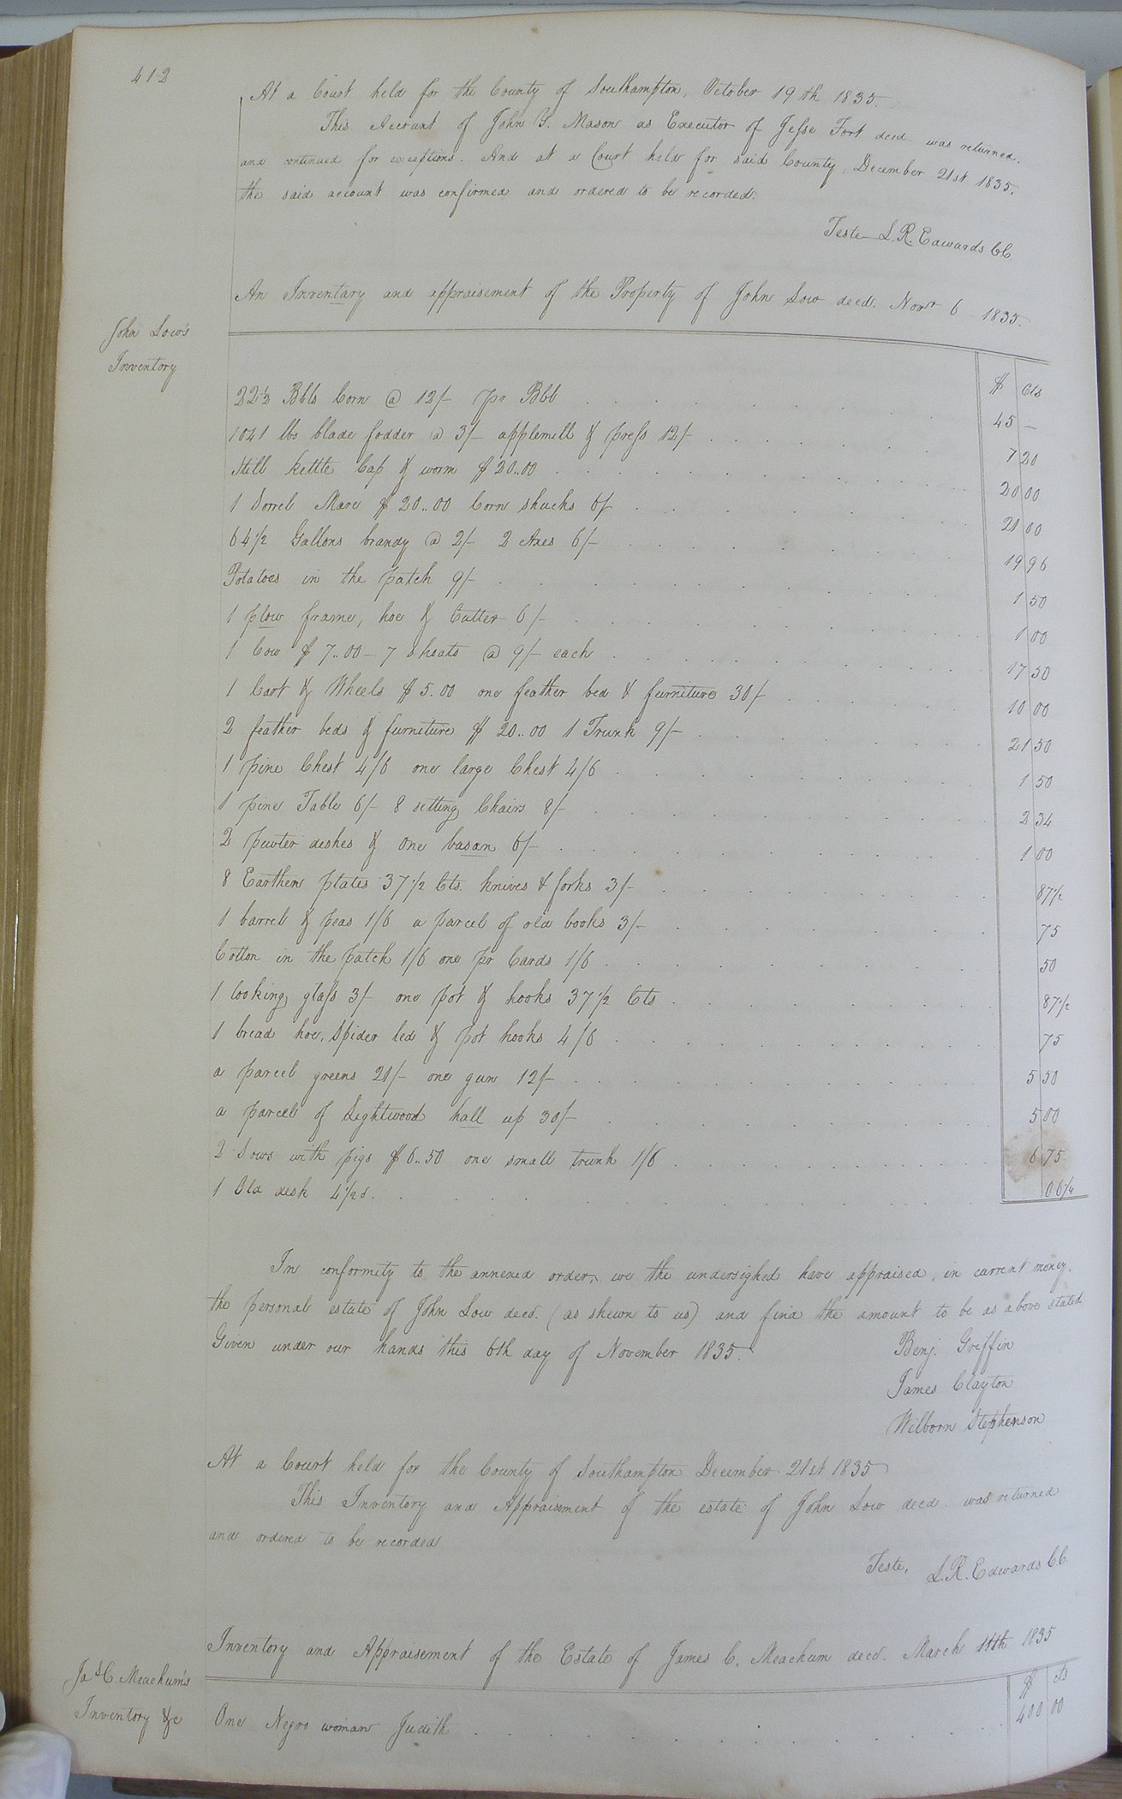 412
At a Court held for the County of Southampton, October 19th 1835.
This Account of John Y. Mason as Executor of Jesse Fort decd was returned
and continued for exceptions. And at a Court held for said County, December 21st 1835.
the said account was confirmed and ordered to be recorded.
Teste L. R. Edwards CC
An Inventary and appraisement of the Property of John Low decd. Novr 6 1835.
John Low's
Inventory
$ Cts
22 1/2 Bbls Corn @ 12/- pr Bbl 45 —
1041 lbs blade fodder @ 3/- applemill & press 12/- 7 20
Still kettle Cap & worm $20..00 20 00
1 Sorrel Mare $20..00 Corn shucks 6/ 21 00
64 1/2 Gallons brandy @ 2/- 2 Axes 6/- 19 96
Potatoes in the patch 9/- 1 50
1 plow frame, hoe & Cutter 6/- 1 00
1 Cow $7..00 - 7 shoats @ 9/- each 17 50
1 Cart & Wheels $5.00 one feather bed & furniture 30/- 10 00
2 feather beds & furniture $20..00 1 Trunk 9/- 21 50
1 pine Chest 4/6 one large Chest 4/6 1 50
1 pine Table 6/- 8 setting Chairs 8/- 2 34
2 pewter dishes & one basan 6/- 1 00
8 Earthen plates 37 1/2 Cts. knives & forks 3/- 87 1/2
1 barrel & peas 1/6 a parcel of old books 3/- 75
Cotton in the patch 1/6 one pr Cards 1/6 50
1 looking glass 3/- one pot & hooks 37 1/2 Cts 87 1/2
1 bread hoe, Spider led & pot hooks 4/6 75
a parcel greens 21/- one gun 12/- 5 50
a parcel of Lightwood hall up 30/- 5 00
2 Sows with pigs $6..50 one small trunk 1/6 6 75
1 Old desk 4 1/2 d. 06 1/4
In conformity to the annexed order, we the undersighed have appraised, in current money,
the personal estate of John Low decd. (as shewn to us) and find the amount to be as above stated
Given under our hands this 6th day of November 1835.
Benj. Griffin
James Clayton
Wilborn Stephenson
At a Court held for the County of Southampton December 21st 1835
This Inventory and Appraisment of the estate of John Low decd was returned
and ordered to be recorded
Teste, L. R. Edwards CC
Inventory and Appraisement of the Estate of James C. Meachum decd. March 11th 1835
Jas C Meachum's
Inventory &c
$ cts
One Negro woman Judith 400 00